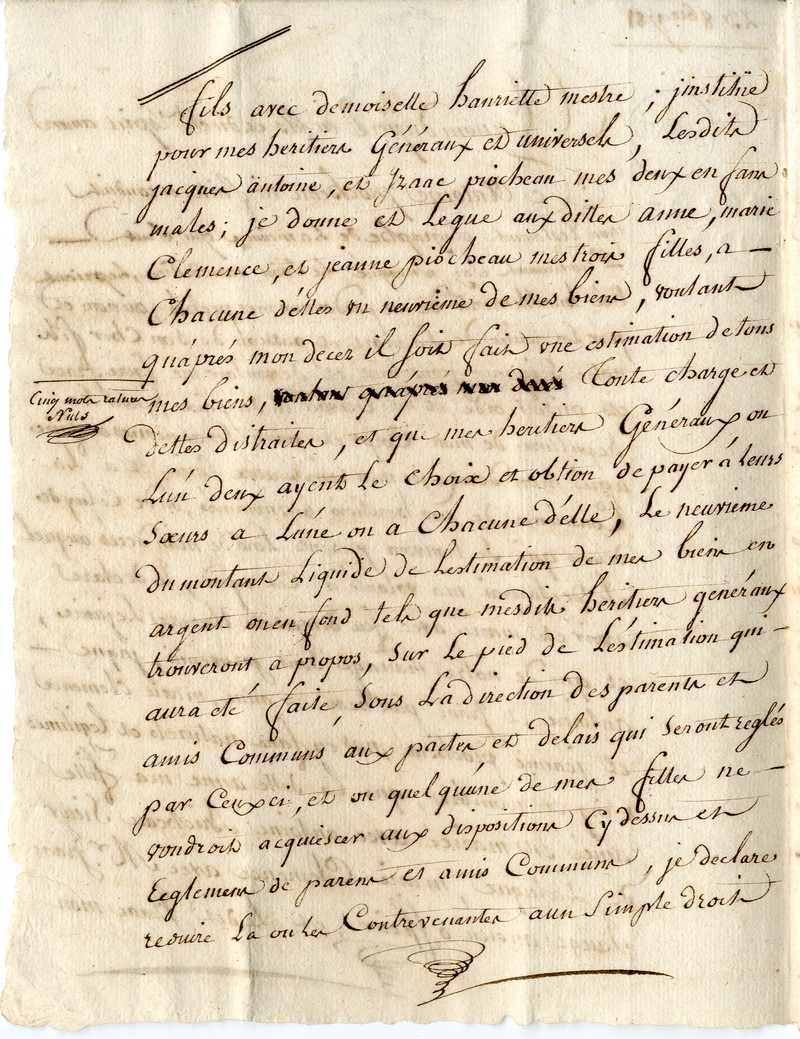 fils avec demoiselle hanriette mestre ; jinstitüe
pour mes heritiers Généraux et universels, Lesdits
jacques antoine, et Izaac piocheau mes deux enfans
males; je donne et Legue auxdittes anne, marie
Clemence, et jeanne piocheau mes trois filles, a —
Chacune d'élles un neuvième de mes biens, voulant
qu'aprés mon decez il soit fait une estimation de tous
mes biens, voulant qu'aprés mon decés Toute charge et
Cinq mots raturés
Nuls
dettes distraites, et que mes heritiers Généraux ou
Lún deux ayent Le choix et obtion de payer á leurs
Sœurs a Lúne ou a Chacune d'élle, Le neuvieme
du montant Liquide de Lestimation de mes biens en
argent ou en fond tels que mesdits heritiers genéraux
trouveront à propos, Sur Le pied de Léstimation qui —
aura eté faite Sous La direction des parents et
amis Communs aux pactes et delais qui Seront reglés
par Ceuxci, et ou quelqu'úne de mes filles ne —
voudroit acquiescer aux dispositions Cy dessus et
Reglement de parens et amis Communs, je declare
reduire La ou les Contrevenantes aun Simple droit